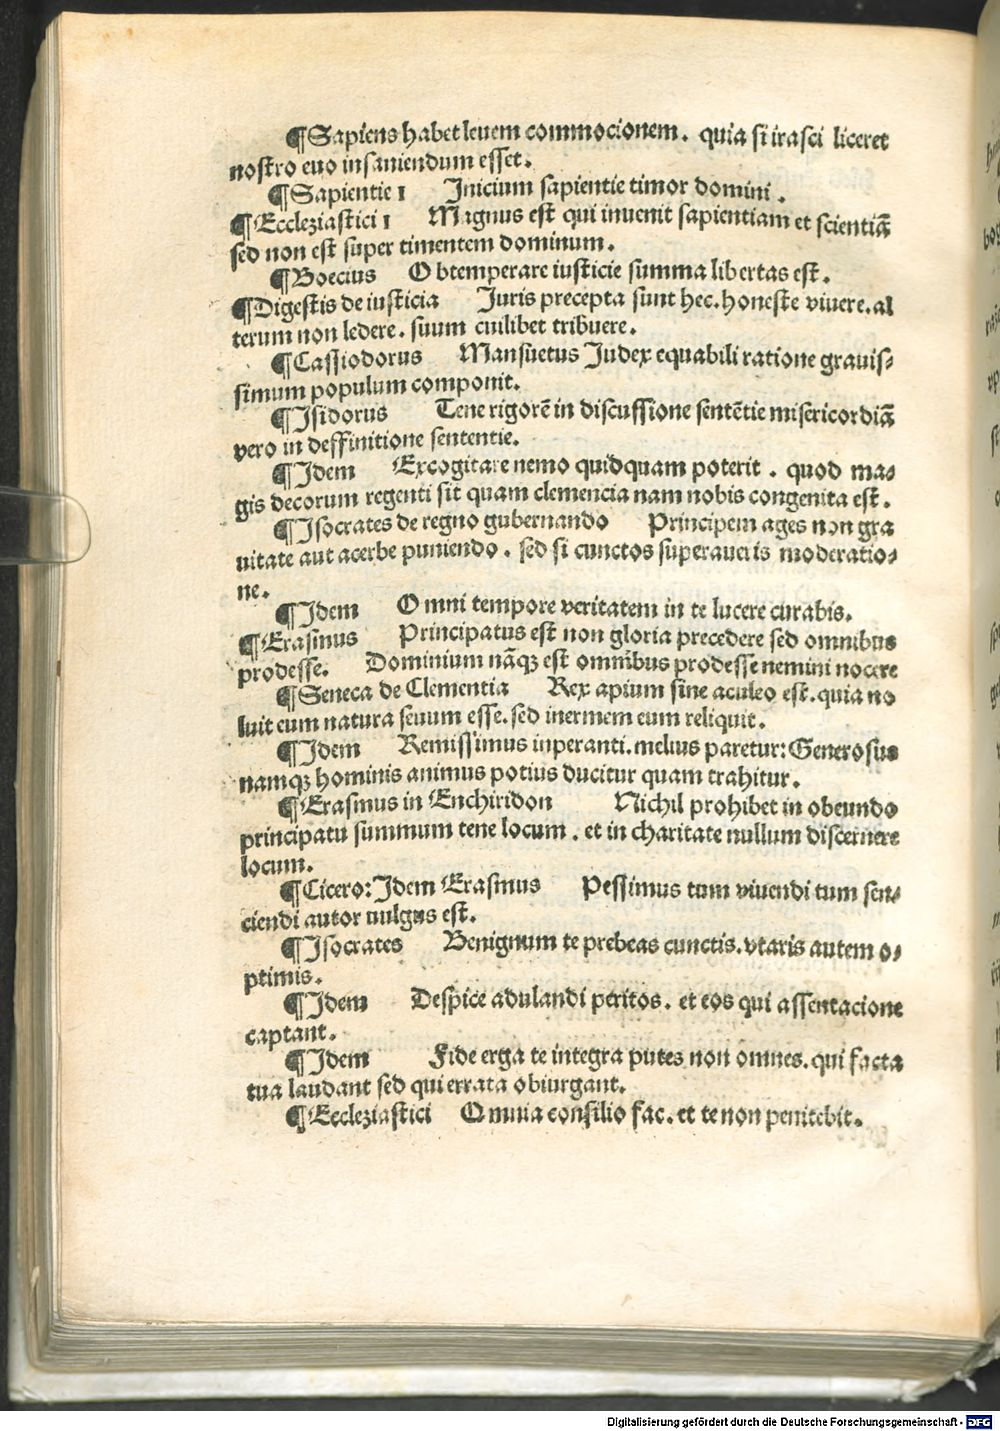 ¶Sapiens habet leuem commocionem. quia si irasci liceret
nostro euo insaniendum esset.
¶Sapientie 1 Inicium sapientie timor domini.
¶Ecclesiastici 1 Magnus est qui inuenit sapientiam et scientiā
sed non est super timentem dominum.
¶Boecius Obtemperare iusticie summa libertas est.
¶Digestis de iusticia Iuris precepta sunt hec. honeste viuere. al
terum non ledere. suum cuilibet tribuere.
¶Cassiodorus Mansuetus Iudex equabili ratione grauis⸗
simum populum componit.
¶Isidorus Tene rigorē in discussione sentētie misericordiā
vero in deffinitione sententie.
¶Idem Excogitare nemo quidquam poterit. quod ma⸗
gis decorum regenti sit quam clemencia nam nobis congenita est.
¶Isocrates de regno gubernando Principem ages non gra
uitate aut acerbe puniendo. sed si cunctos superaueris moderatio⸗
ne.
¶Idem Omni tempore veritatem in te lucere curabis.
¶Erasmus Principatus est non gloria precedere sed omnibus
prodesse. Dominium nāqꝫ est omnibus prodesse nemini nocere
¶Seneca de Clementia Rex apium sine aculeo est. quia no
luit eum natura seuum esse. sed inermem eum reliquit.
¶Idem Remissimus inperanti. melius paretur: Generosus
namqꝫ hominis animus potius ducitur quam trahitur.
¶Erasmus in Enchiridon Nichil prohibet in obeundo
principatu summum tene locum. et in charitate nullum discernere
locum.
¶Cicero: Idem Erasmus Pessimus tum viuendi tum sen⸗
ciendi autor uulgus est.
¶Isocrates Benignum te prebeas cunctis. vtaris autem o⸗
ptimis.
¶Idem Despice adulandi peritos. et eos qui assentacione
captant.
¶Idem Fide erga te integra putes non omnes. qui facta
tua laudant sed qui errata obiurgant.
¶Ecclesiastici Omnia consilio fac. et te non penitebit.
Digitalisierung gefördert durch die Deutsche Forschungsgemeinschaft - DFG